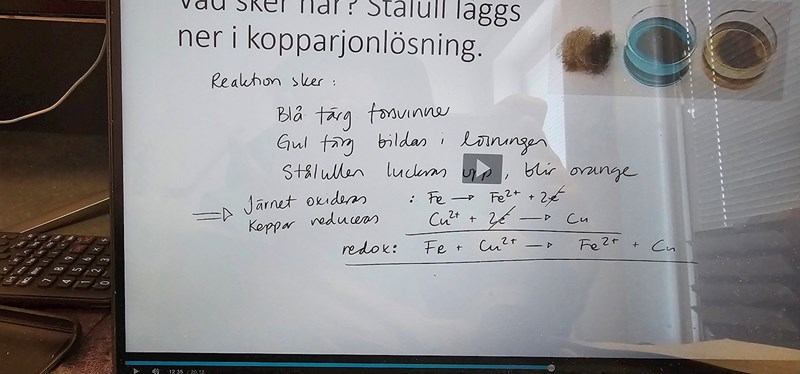 Vad sker här? Stålull läggs
ner i kopparjonlösning.
Reaktion sker:
Blå färg försvinner
Gul färg bildas i lösningen
Stålullen luckras upp, blir orange
⇒ Järnet oxideras : Fe → Fe²⁺ + 2e⁻
Koppar reduceras Cu²⁺ + 2e⁻ → Cu
redox: Fe + Cu²⁺ → Fe²⁺ + Cu
12:35 / 20:13